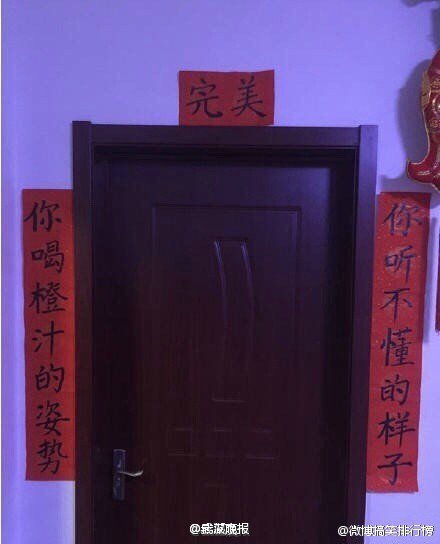 完美
你喝橙汁的姿势
你听不懂的样子
@微博搞笑排行榜